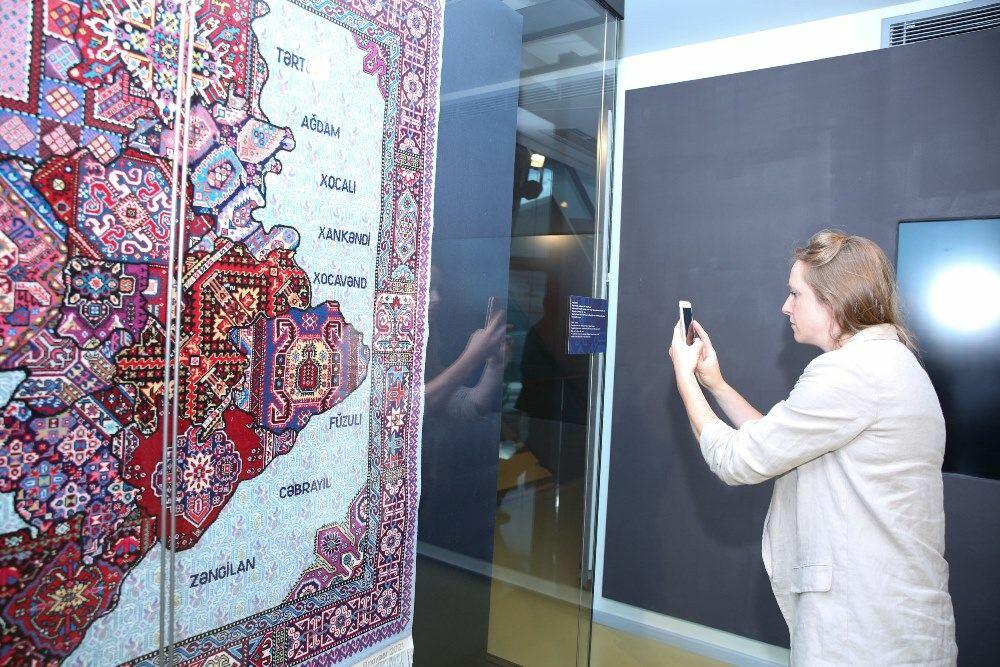 TƏRT
AĞDAM
XOCALI
XANKƏNDİ
XOCAVƏND
FÜZULİ
CƏBRAYIL
ZƏNGİLAN